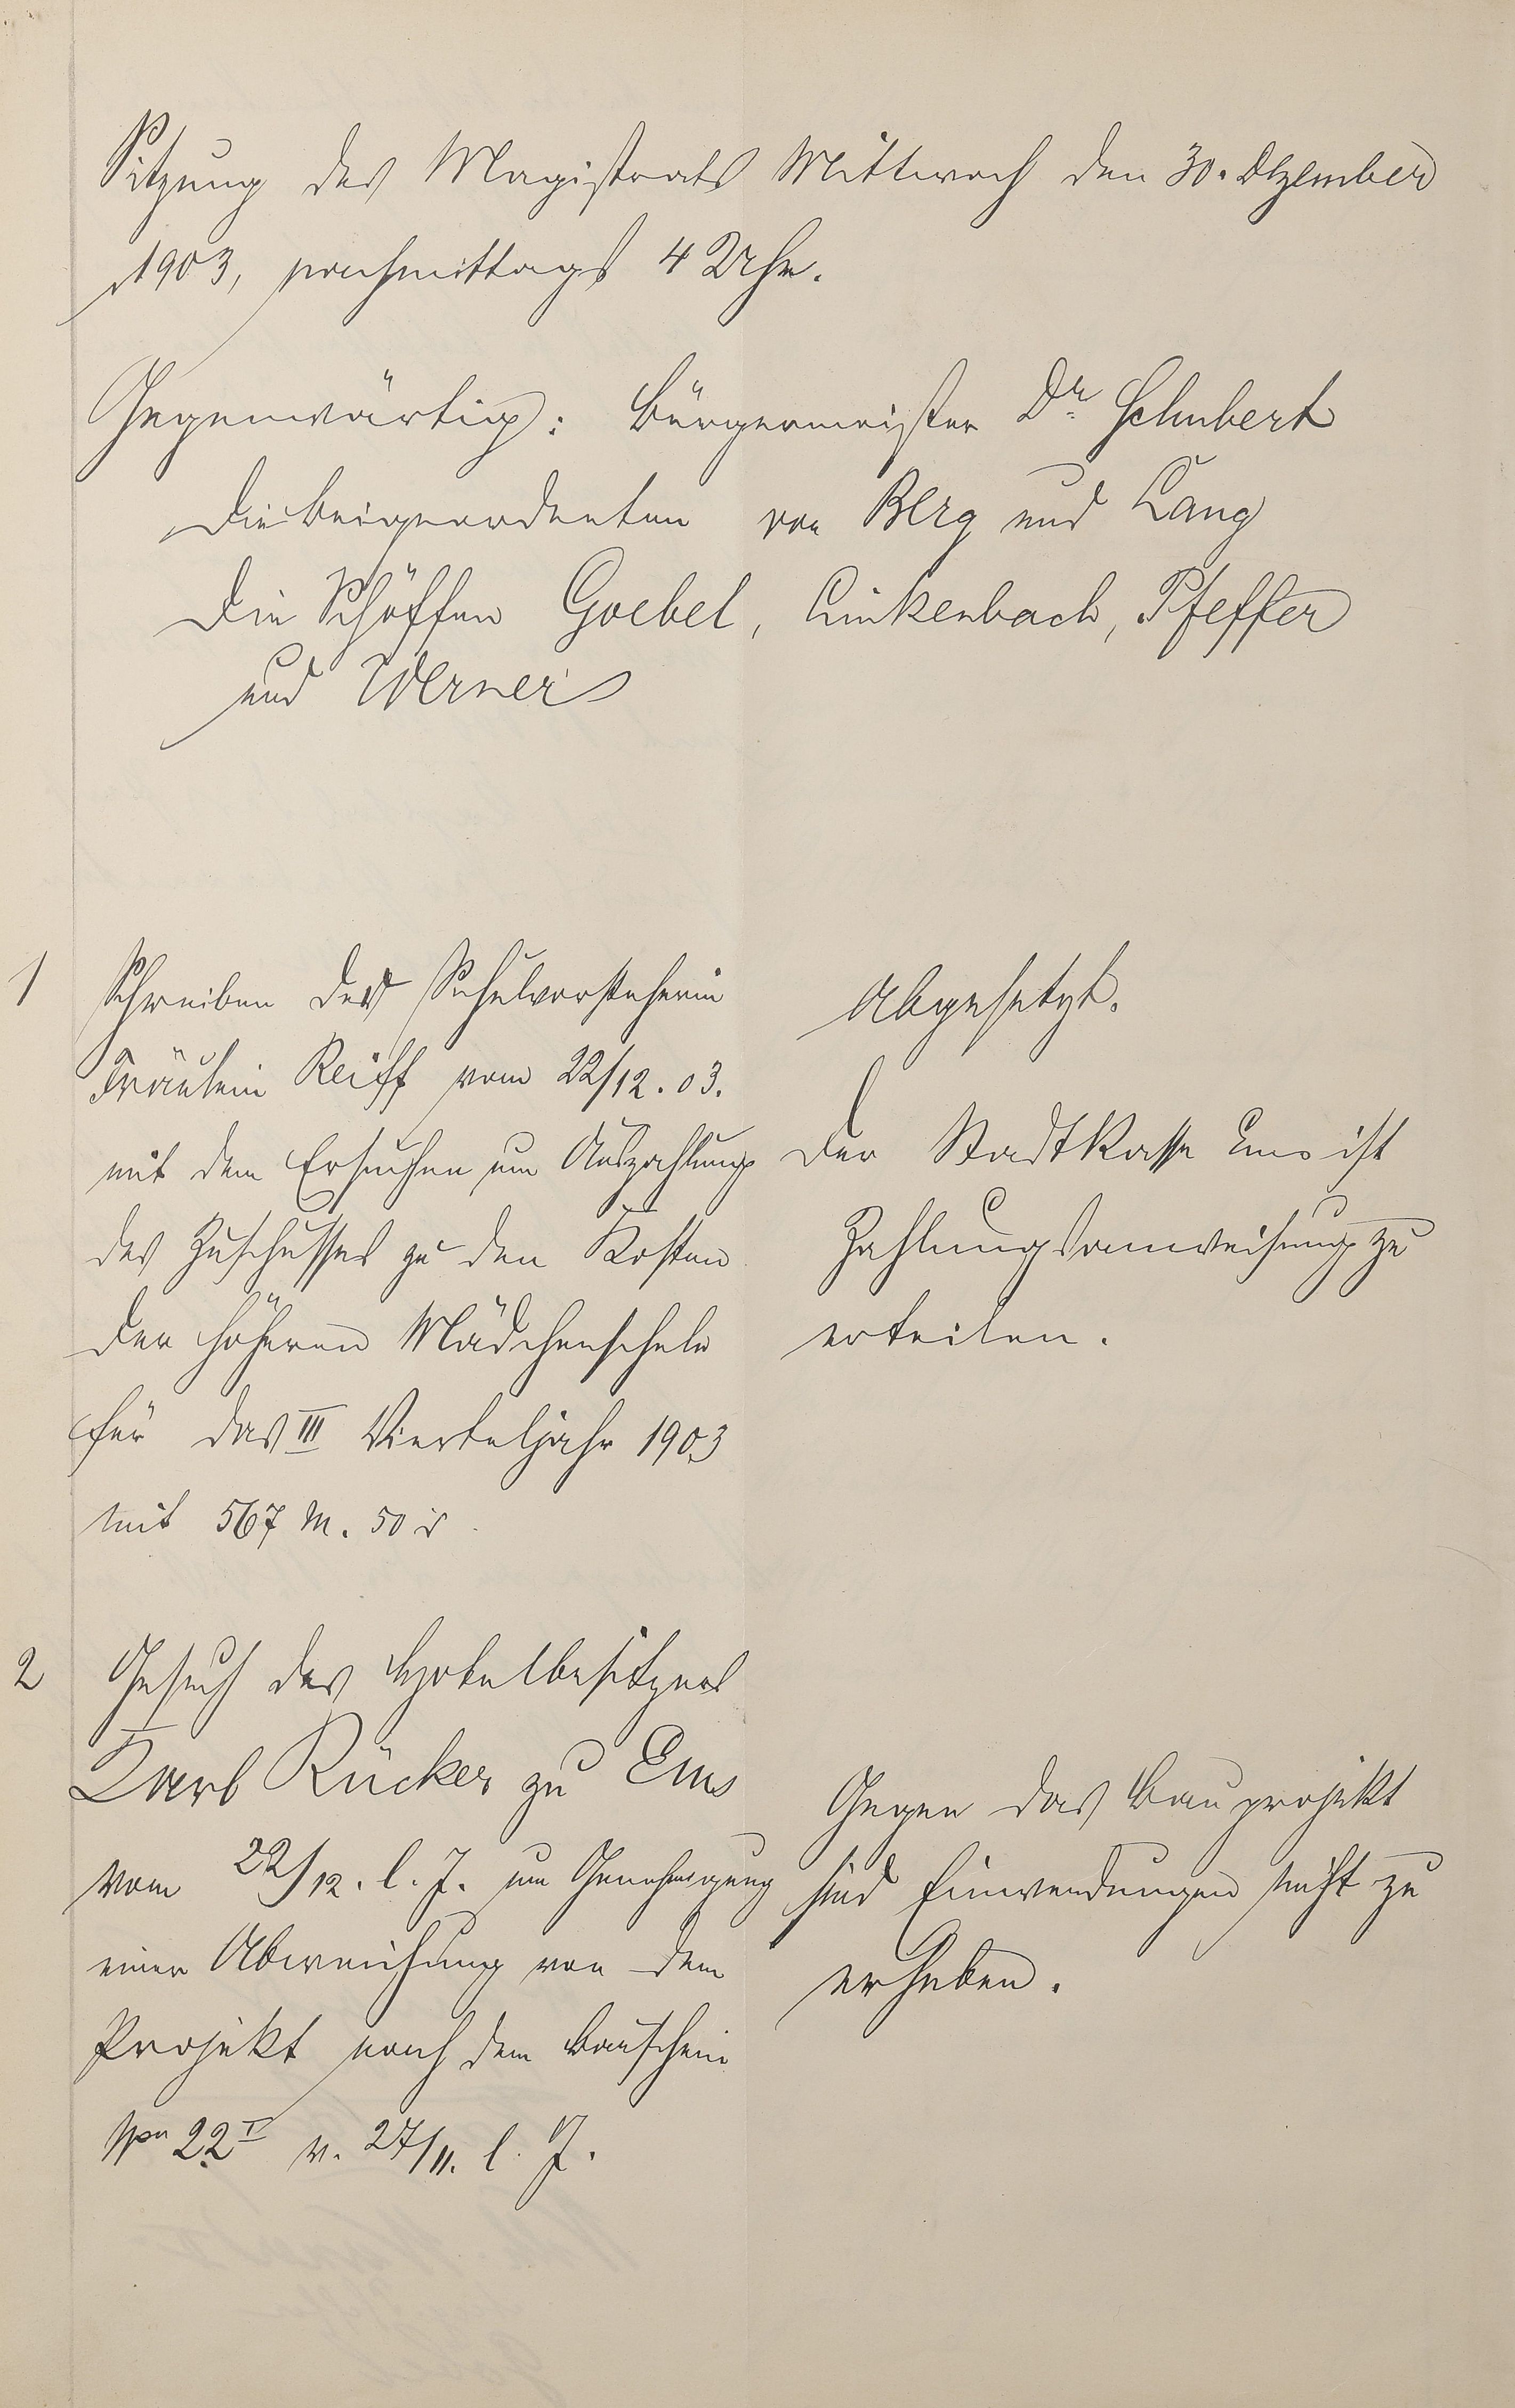 Sitzung des Magistrats Mittwoch den 30. Dezember
1903, nachmittags 4 Uhr.
Gegenwärtig: Bürgermeister Dr. Schubert
die Beigeordneten von Berg und Lang
die Schöffen Goebel, Linkenbach, Pfeffer
und Werner
1
Schreiben der Schulvorsteherin
Fräulein Reiff vom 22/12. 03.
mit dem Ersuchen um Auszahlung
des Zuschusses zu den Kosten
der höheren Mädchenschule
für das III Vierteljahr 1903
mit 567 M. 50 ₰
Abgesetzt.
Der Stadtkasse Ems ist
Zahlungsanweisung zu
erteilen.
2
Gesuch des Hotelbesitzers
Karl Rücker zu Ems
vom 22/12. l. J. um Genehmigung
einer Abweichung von dem
Projekt nach dem Bauschein
22 I v. 27/11. l. J.
Gegen das Bauprojekt
sind Einwendungen nicht zu
erheben.